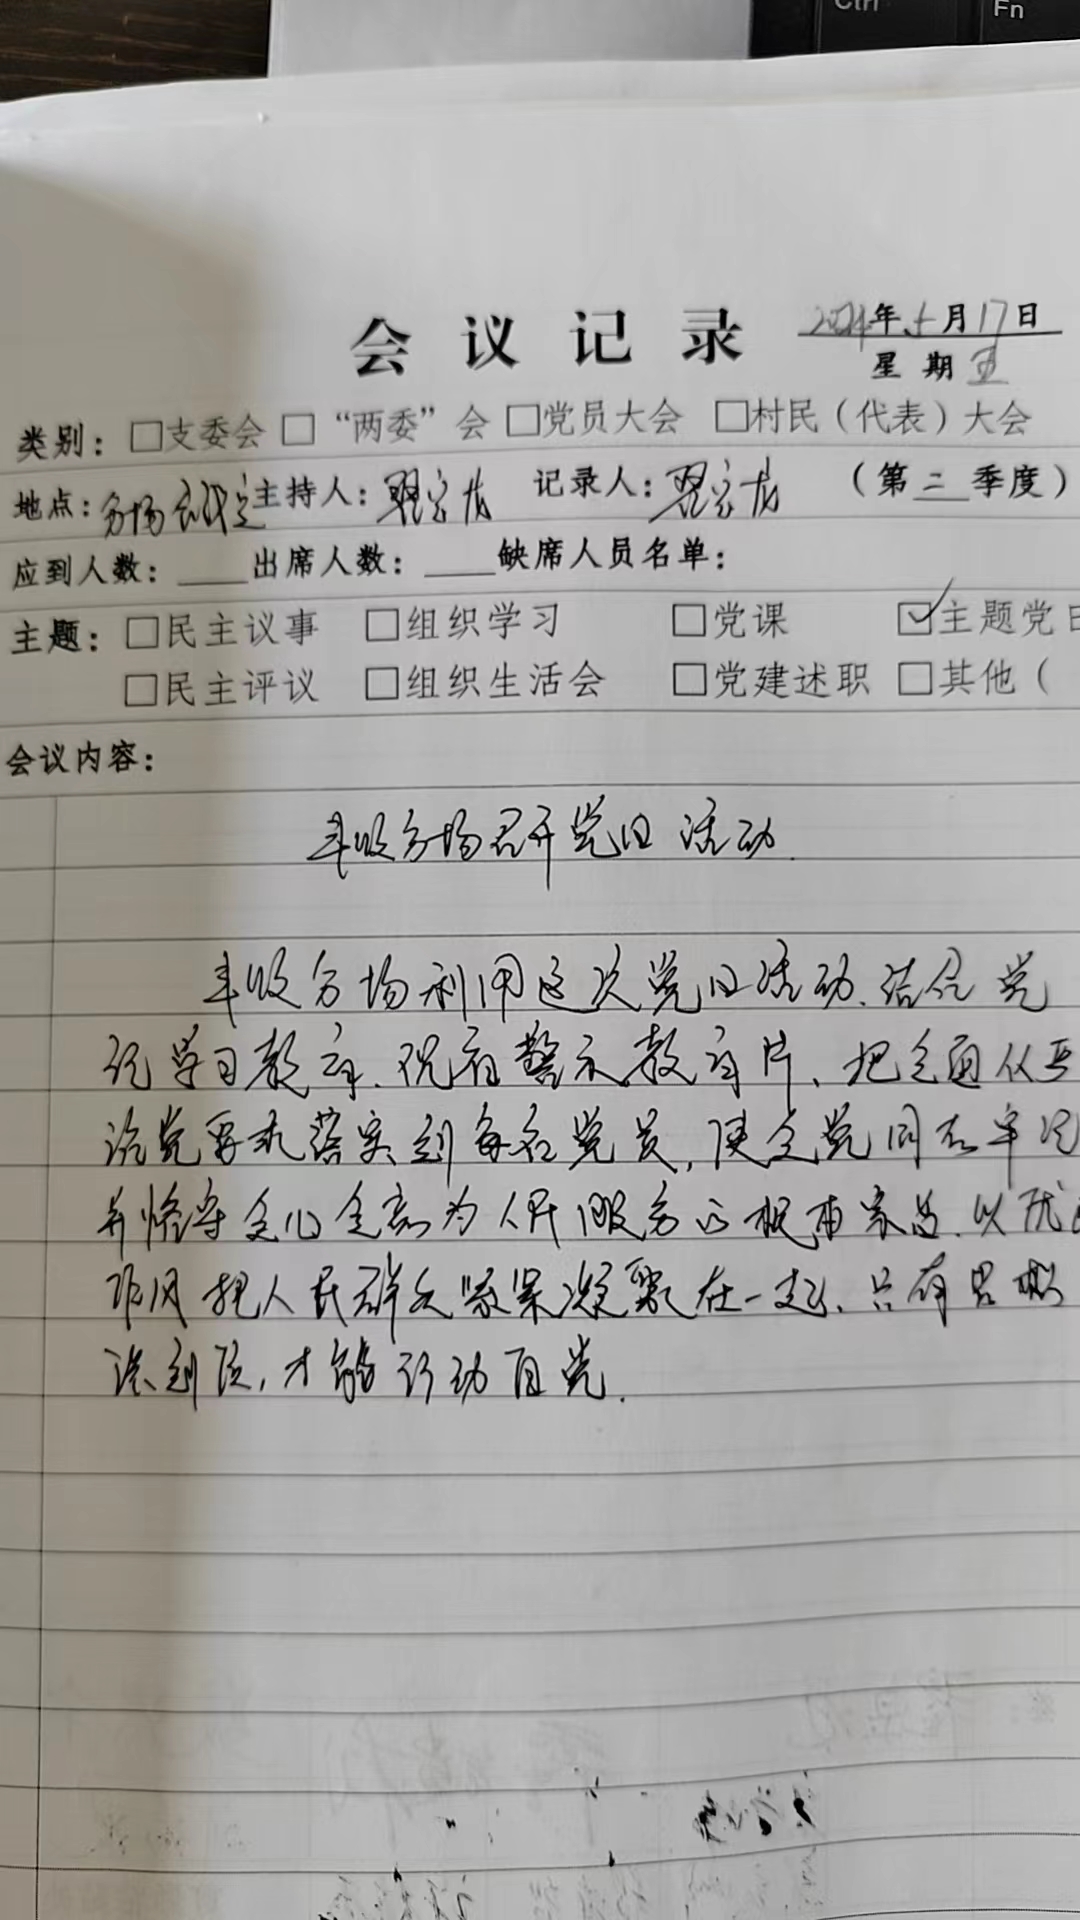 Ctrl
Fn
会议记录
2024年5月17日
星期五
类别：□支委会 □“两委”会 □党员大会 □村民（代表）大会
地点：分场会议室 主持人：翟宗龙 记录人：翟宗龙 （第二季度）
应到人数：____出席人数：____缺席人员名单：
主题：□民主议事 □组织学习 □党课 ☑主题党日
□民主评议 □组织生活会 □党建述职 □其他（
会议内容：
丰收分场召开党日活动.
丰收分场利用这次党日活动、结合党
纪学习教育、观看警示教育片、把全面从严
治党要求落实到每名党员，使全党同志牢记
并恪守全心全意为人民服务的根本宗旨、以优良
作风把人民群众紧紧凝聚在一起、只有思想
认到位，才能行动自觉.